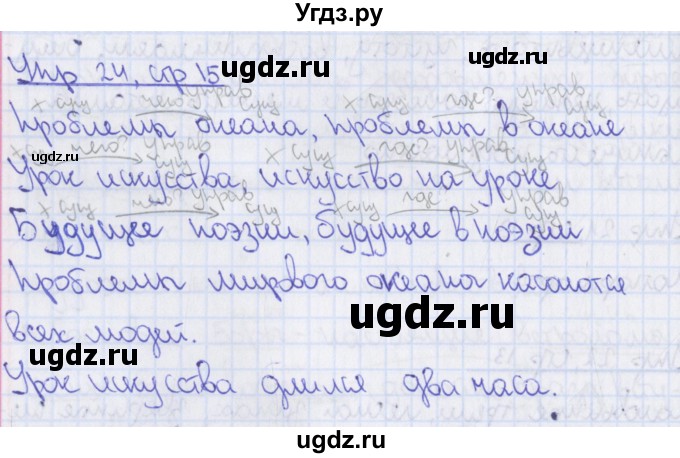 Угдз.ру
Упр 24, стр 15
ugdz.ru
х сущ чего? управ сущ х сущ где? управ сущ
Проблемы океана, проблемы в океане
ugdz.ru
х сущ чего? управ сущ х сущ где? управ сущ
Урок искусства, искусство на уроке
х сущ чего? управ сущ х сущ где управ сущ
Будущее поэзии, будущее в поэзии
ugdz.ru
Проблемы мирового океана касаются
ugdz.ru
всех людей.
ugdz.ru
Урок искусства длился два часа.
ugdz.ru